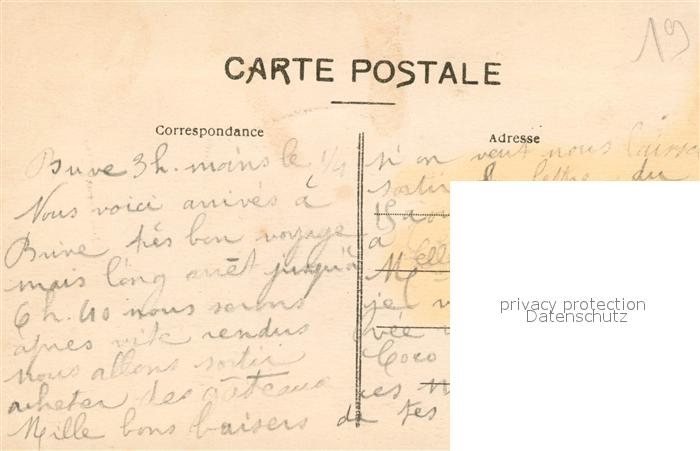 19
CARTE POSTALE
Correspondance
Brive 3h. moins le 1/4
Nous voici arrivés à
Brive très bon voyage
mais long arrêt jusqu'à
6 h. 40 nous serons
après vite rendus
nous allons sortir
acheter des gâteaux
Mille bons baisers de tes
Adresse
si on veut nous laisser
sortir lettre du
à
Melle
je
Coco
privacy protection
Datenschutz